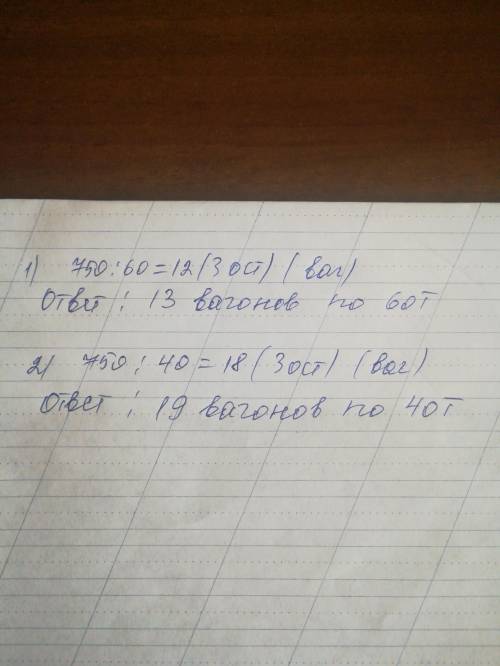 1) 750:60=12(3ост) (ваг)
Ответ: 13 вагонов по 60т
2) 750:40=18(3ост) (ваг)
Ответ: 19 вагонов по 40т